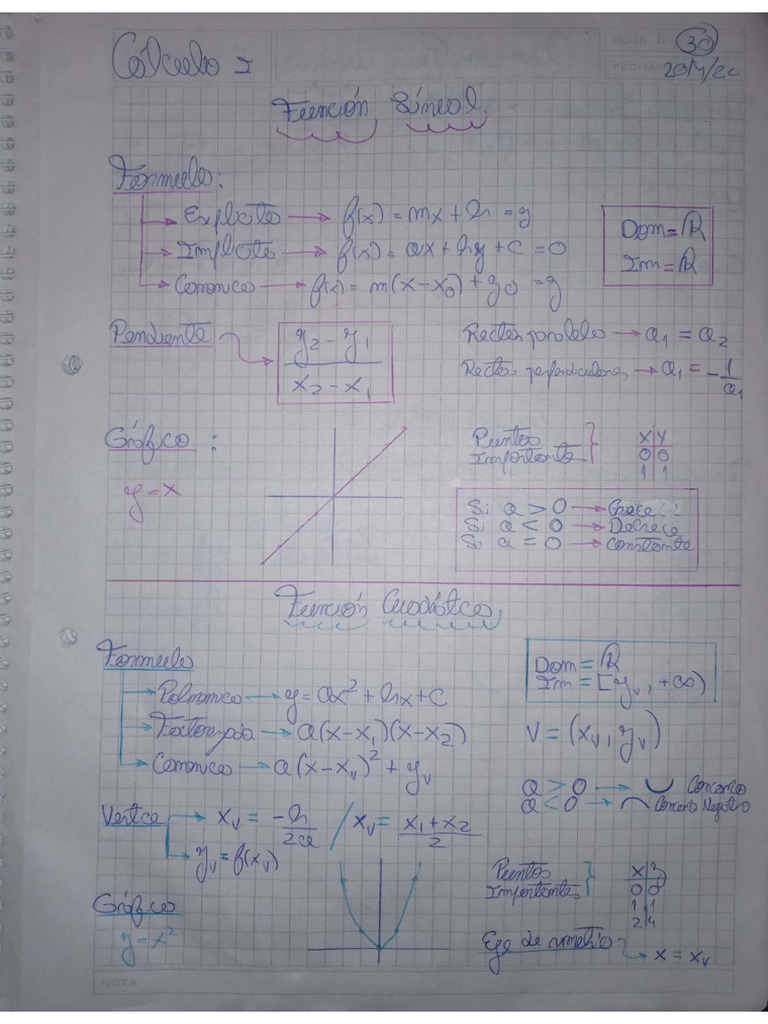 HOJA N° 30
Cálculo I
FECHA
Función Lineal
Formula:
Explicita → f(x) = mx + b = y
Implicita → f(x) = ax + by + c = 0
Canonica → f(x) = m(x - x₀) + y₀ = y
Dom = ℝ
Im = ℝ
Pendiente
y₂ - y₁
x₂ - x₁
Rectas paralelas → a₁ = a₂
Rectas perpendiculares → a₁ = - 1/a₁
Gráfico :
y = x
Puntos
Importantes
X Y
0 0
1 1
Si a > 0 → Crece
Si a < 0 → Decrece
Si a = 0 → Constante
Función Cuadrática
Formula
Polinomica → y = ax² + bx + c
Factorizada → a(x - x₁)(x - x₂)
Canonica → a(x - xᵥ)² + yᵥ
Dom = ℝ
Im = [yᵥ, +∞)
V = (xᵥ, yᵥ)
a > 0 → ∪ Concava
a < 0 → ∩ Concava Negativa
Vertice → xᵥ = -b/2a / xᵥ = x₁ + x₂/2
yᵥ = f(xᵥ)
Puntos
Importantes
X y
0 0
1 1
2 4
Gráfico
y = x²
Eje de simetria → x = xᵥ
NOTA